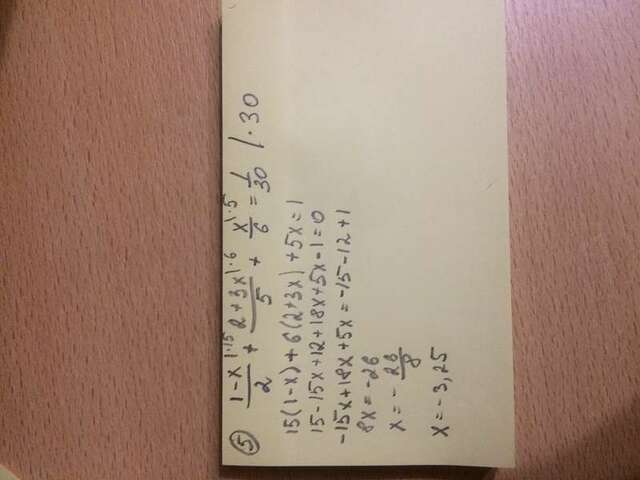 ⑤ (1-x)/2 |·15 + (2+3x)/5 |·6 + x/6 |·5 = 1/30 / ·30
15(1-x)+6(2+3x)+5x=1
15-15x+12+18x+5x-1=0
-15x+18x+5x=-15-12+1
8x=-26
x=-26/8
x=-3,25